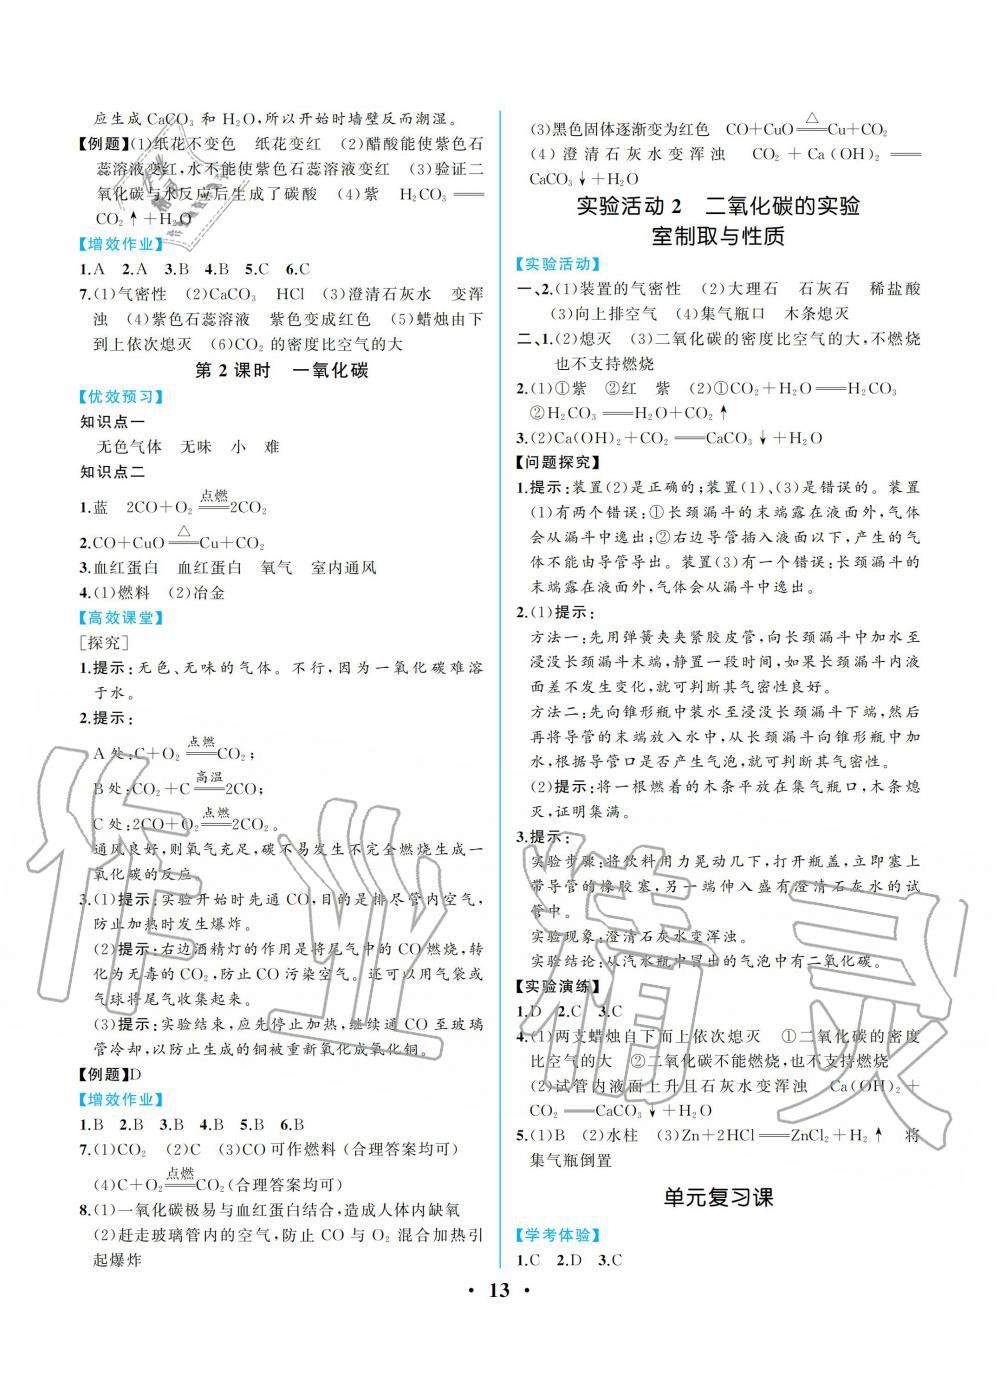 应生成 CaCO₃ 和 H₂O,所以开始时墙壁反而潮湿。
【例题】(1)纸花不变色　纸花变红　(2)醋酸能使紫色石
蕊溶液变红,水不能使紫色石蕊溶液变红　(3)验证二
氧化碳与水反应后生成了碳酸　(4)紫　H₂CO₃ ══
CO₂↑+H₂O
【增效作业】
1.A　2.A　3.B　4.B　5.C　6.C
7.(1)气密性　(2)CaCO₃　HCl　(3)澄清石灰水　变浑
浊　(4)紫色石蕊溶液　紫色变成红色　(5)蜡烛由下
到上依次熄灭　(6)CO₂ 的密度比空气的大
第 2 课时　一氧化碳
【优效预习】
知识点一
无色气体　无味　小　难
知识点二
1.蓝　2CO+O₂ ══点燃══ 2CO₂
2.CO+CuO ══△══ Cu+CO₂
3.血红蛋白　血红蛋白　氧气　室内通风
4.(1)燃料　(2)冶金
【高效课堂】
[探究]
1.提示:无色、无味的气体。不行,因为一氧化碳难溶
于水。
2.提示:
A 处:C+O₂ ══点燃══ CO₂;
B 处:CO₂+C ══高温══ 2CO;
C 处:2CO+O₂ ══点燃══ 2CO₂。
通风良好,则氧气充足,碳不易发生不完全燃烧生成一
氧化碳的反应。
3.(1)提示:实验开始时先通 CO,目的是排尽管内空气,
防止加热时发生爆炸。
(2)提示:右边酒精灯的作用是将尾气中的 CO 燃烧,转
化为无毒的 CO₂,防止 CO 污染空气。还可以用气袋或
气球将尾气收集起来。
(3)提示:实验结束,应先停止加热,继续通 CO 至玻璃
管冷却,以防止生成的铜被重新氧化成氧化铜。
【例题】D
【增效作业】
1.B　2.B　3.B　4.B　5.B　6.B
7.(1)CO₂　(2)C　(3)CO 可作燃料(合理答案均可)
(4)C+O₂ ══点燃══ CO₂(合理答案均可)
8.(1)一氧化碳极易与血红蛋白结合,造成人体内缺氧
(2)赶走玻璃管内的空气,防止 CO 与 O₂ 混合加热引
起爆炸
(3)黑色固体逐渐变为红色　CO+CuO ══△══ Cu+CO₂
(4)澄清石灰水变浑浊　CO₂+Ca(OH)₂ ══
CaCO₃↓+H₂O
实验活动 2　二氧化碳的实验
室制取与性质
【实验活动】
一、2.(1)装置的气密性　(2)大理石　石灰石　稀盐酸
(3)向上排空气　(4)集气瓶口　木条熄灭
二、1.(2)熄灭　(3)二氧化碳的密度比空气的大,不燃烧
也不支持燃烧
2.(1)①紫　②红　紫　(2)①CO₂+H₂O ══ H₂CO₃
②H₂CO₃ ══ H₂O+CO₂↑
3.(2)Ca(OH)₂+CO₂ ══ CaCO₃↓+H₂O
【问题探究】
1.提示:装置(2)是正确的;装置(1)、(3)是错误的。装置
(1)有两个错误:①长颈漏斗的末端露在液面外,气体
会从漏斗中逸出;②右边导管插入液面以下,产生的气
体不能由导管导出。装置(3)有一个错误:长颈漏斗的
末端露在液面外,气体会从漏斗中逸出。
2.(1)提示:
方法一:先用弹簧夹夹紧胶皮管,向长颈漏斗中加水至
浸没长颈漏斗末端,静置一段时间,如果长颈漏斗内液
面差不发生变化,就可判断其气密性良好。
方法二:先向锥形瓶中装水至浸没长颈漏斗下端,然后
再将导管的末端放入水中,从长颈漏斗向锥形瓶中加
水,根据导管口是否产生气泡,就可判断其气密性。
(2)提示:将一根燃着的木条平放在集气瓶口,木条熄
灭,证明集满。
3.提示:
实验步骤:将饮料用力晃动几下,打开瓶盖,立即塞上
带导管的橡胶塞,另一端伸入盛有澄清石灰水的试
管中。
实验现象:澄清石灰水变浑浊。
实验结论:从汽水瓶中冒出的气泡中有二氧化碳。
【实验演练】
1.D　2.C　3.C
4.(1)两支蜡烛自下而上依次熄灭　①二氧化碳的密度
比空气的大　②二氧化碳不能燃烧,也不支持燃烧
(2)试管内液面上升且石灰水变浑浊　Ca(OH)₂+
CO₂ ══ CaCO₃↓+H₂O
5.(1)B　(2)水柱　(3)Zn+2HCl ══ ZnCl₂+H₂↑　将
集气瓶倒置
单元复习课
【学考体验】
1.C　2.D　3.C
• 13 •
作业精灵